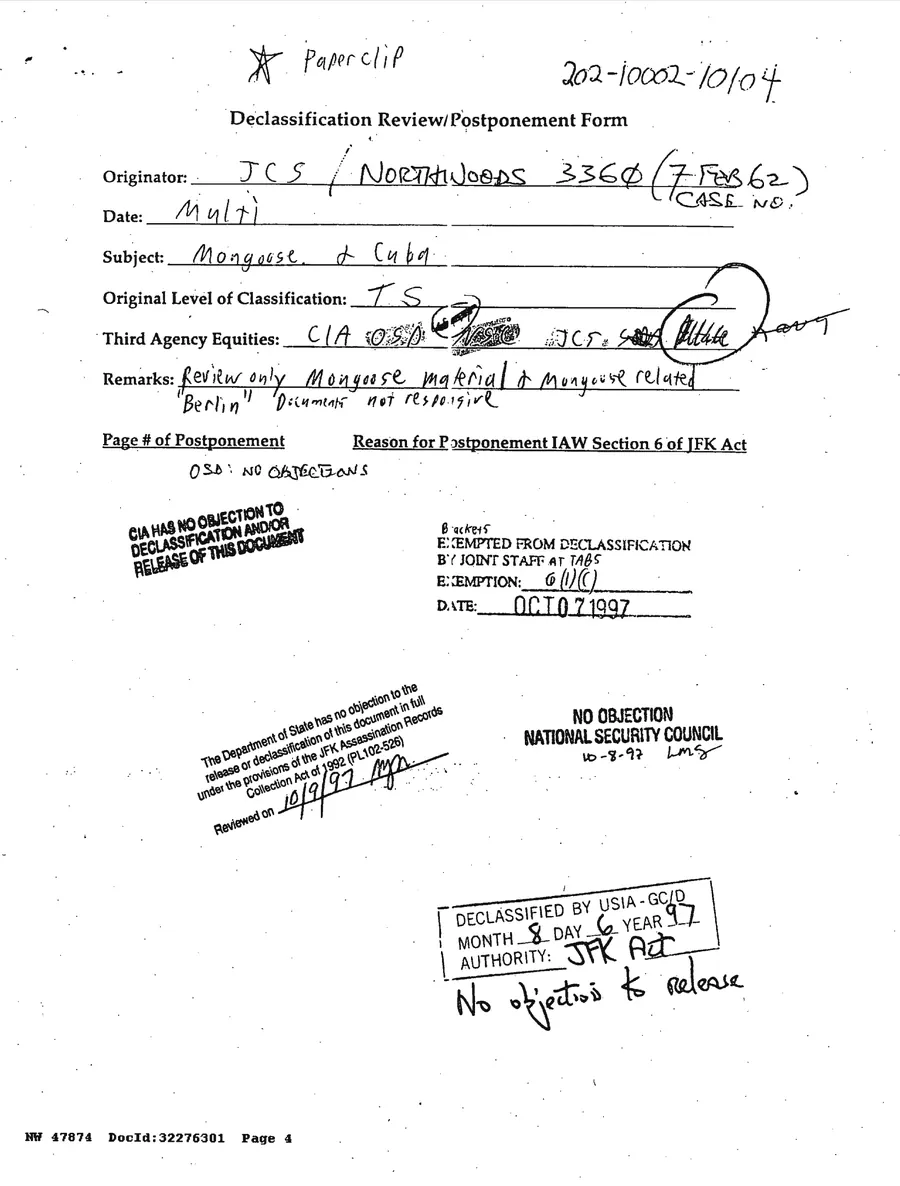 Paperclip
202-10002-10104
Declassification Review/Postponement Form
Originator: JCS / NORTHWOODS 3360 (7 FEB 62)
CASE NO.
Date: Multi
Subject: Mongoose & Cuba
Original Level of Classification: TS
Third Agency Equities: CIA OSD NSC JCS State Navy
Remarks: Review only Mongoose material & Mongoose related
"Berlin" Documents not responsive
Page # of Postponement Reason for Postponement IAW Section 6 of JFK Act
OSD: NO OBJECTIONS
CIA HAS NO OBJECTION TO
DECLASSIFICATION AND/OR
RELEASE OF THIS DOCUMENT
Brackets
EXEMPTED FROM DECLASSIFICATION
BY JOINT STAFF AT TABS
EXEMPTION: 6(1)(C)
DATE: OCT 07 1997
The Department of State has no objection to the
release or declassification of this document in full
under the provisions of the JFK Assassination Records
Collection Act of 1992 (PL102-526)
Reviewed on 10/9/97
NO OBJECTION
NATIONAL SECURITY COUNCIL
10-8-97 LMS
DECLASSIFIED BY USIA-GC/D
MONTH 8 DAY 6 YEAR 97
AUTHORITY: JFK Act
No objection to release
NW 47874 DocId:32276301 Page 4